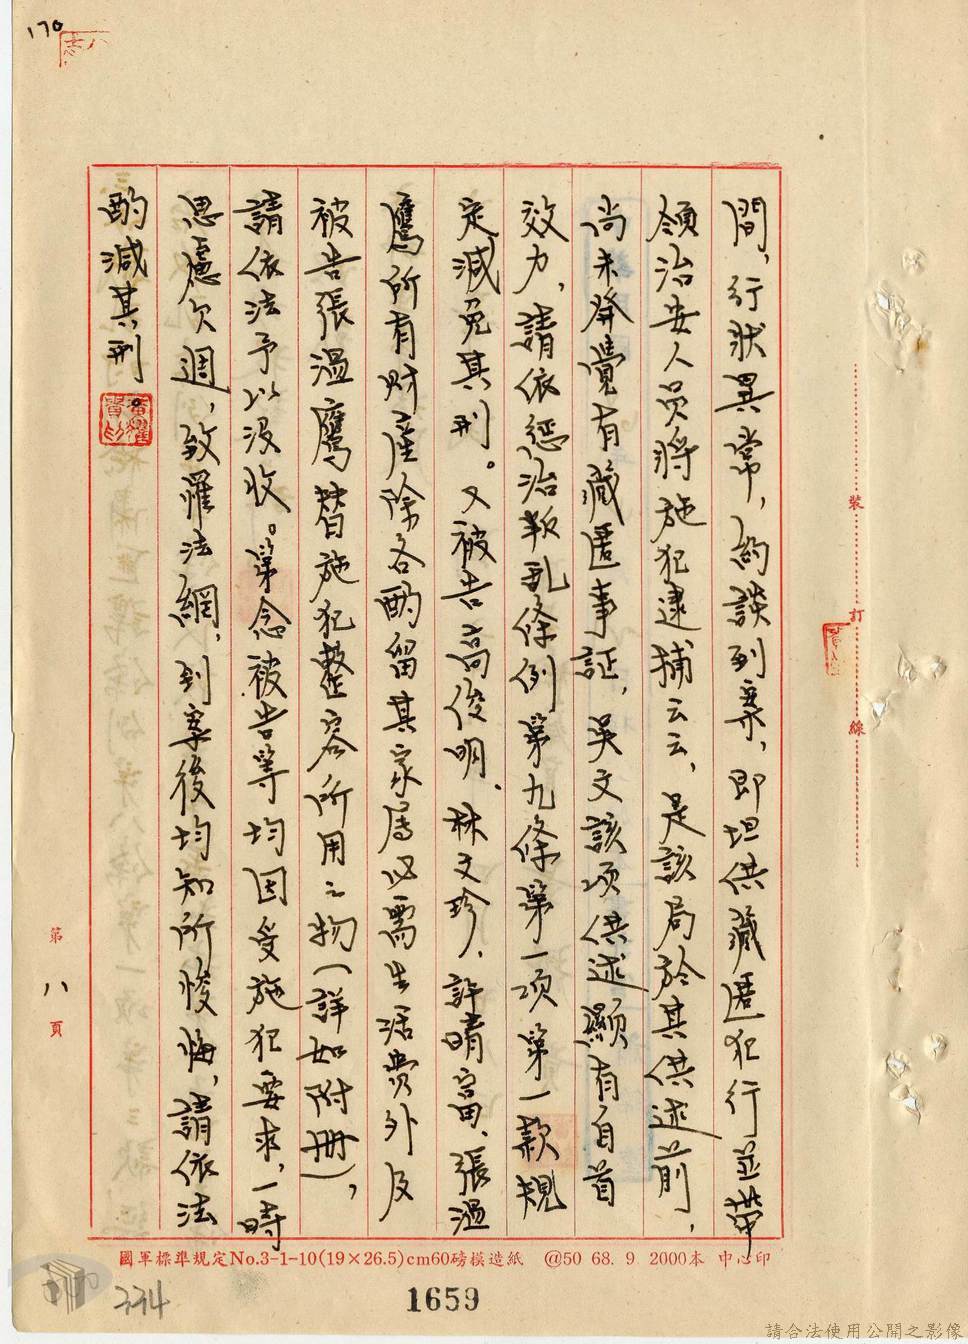 170
間，行狀異常，約談到案，即坦供藏匿犯行並帶
領治安人員將施犯逮捕云云，是該局於其供述前，
尚未發覺有藏匿事証，吳文該項供述顯有自首
效力，請依懲治叛乱條例第九條第一項第一款規
定減免其刑。又被告高俊明、林文珍、許晴富、張溫
鷹所有財產除各酌留其家屬必需生活費外及
被告張溫鷹替施犯整容所用之物（詳如附冊），
請依法予以沒收。第念被告等均因受施犯要求，一時
思慮欠週，致罹法網，到案後均知所悛悔，請依法
酌減其刑。
裝
訂
線
第八頁
國軍標準規定No.3-1-10(19×26.5)cm60磅模造紙 @50 68. 9 2000本 中心印
334
1659
請合法使用公開之影像